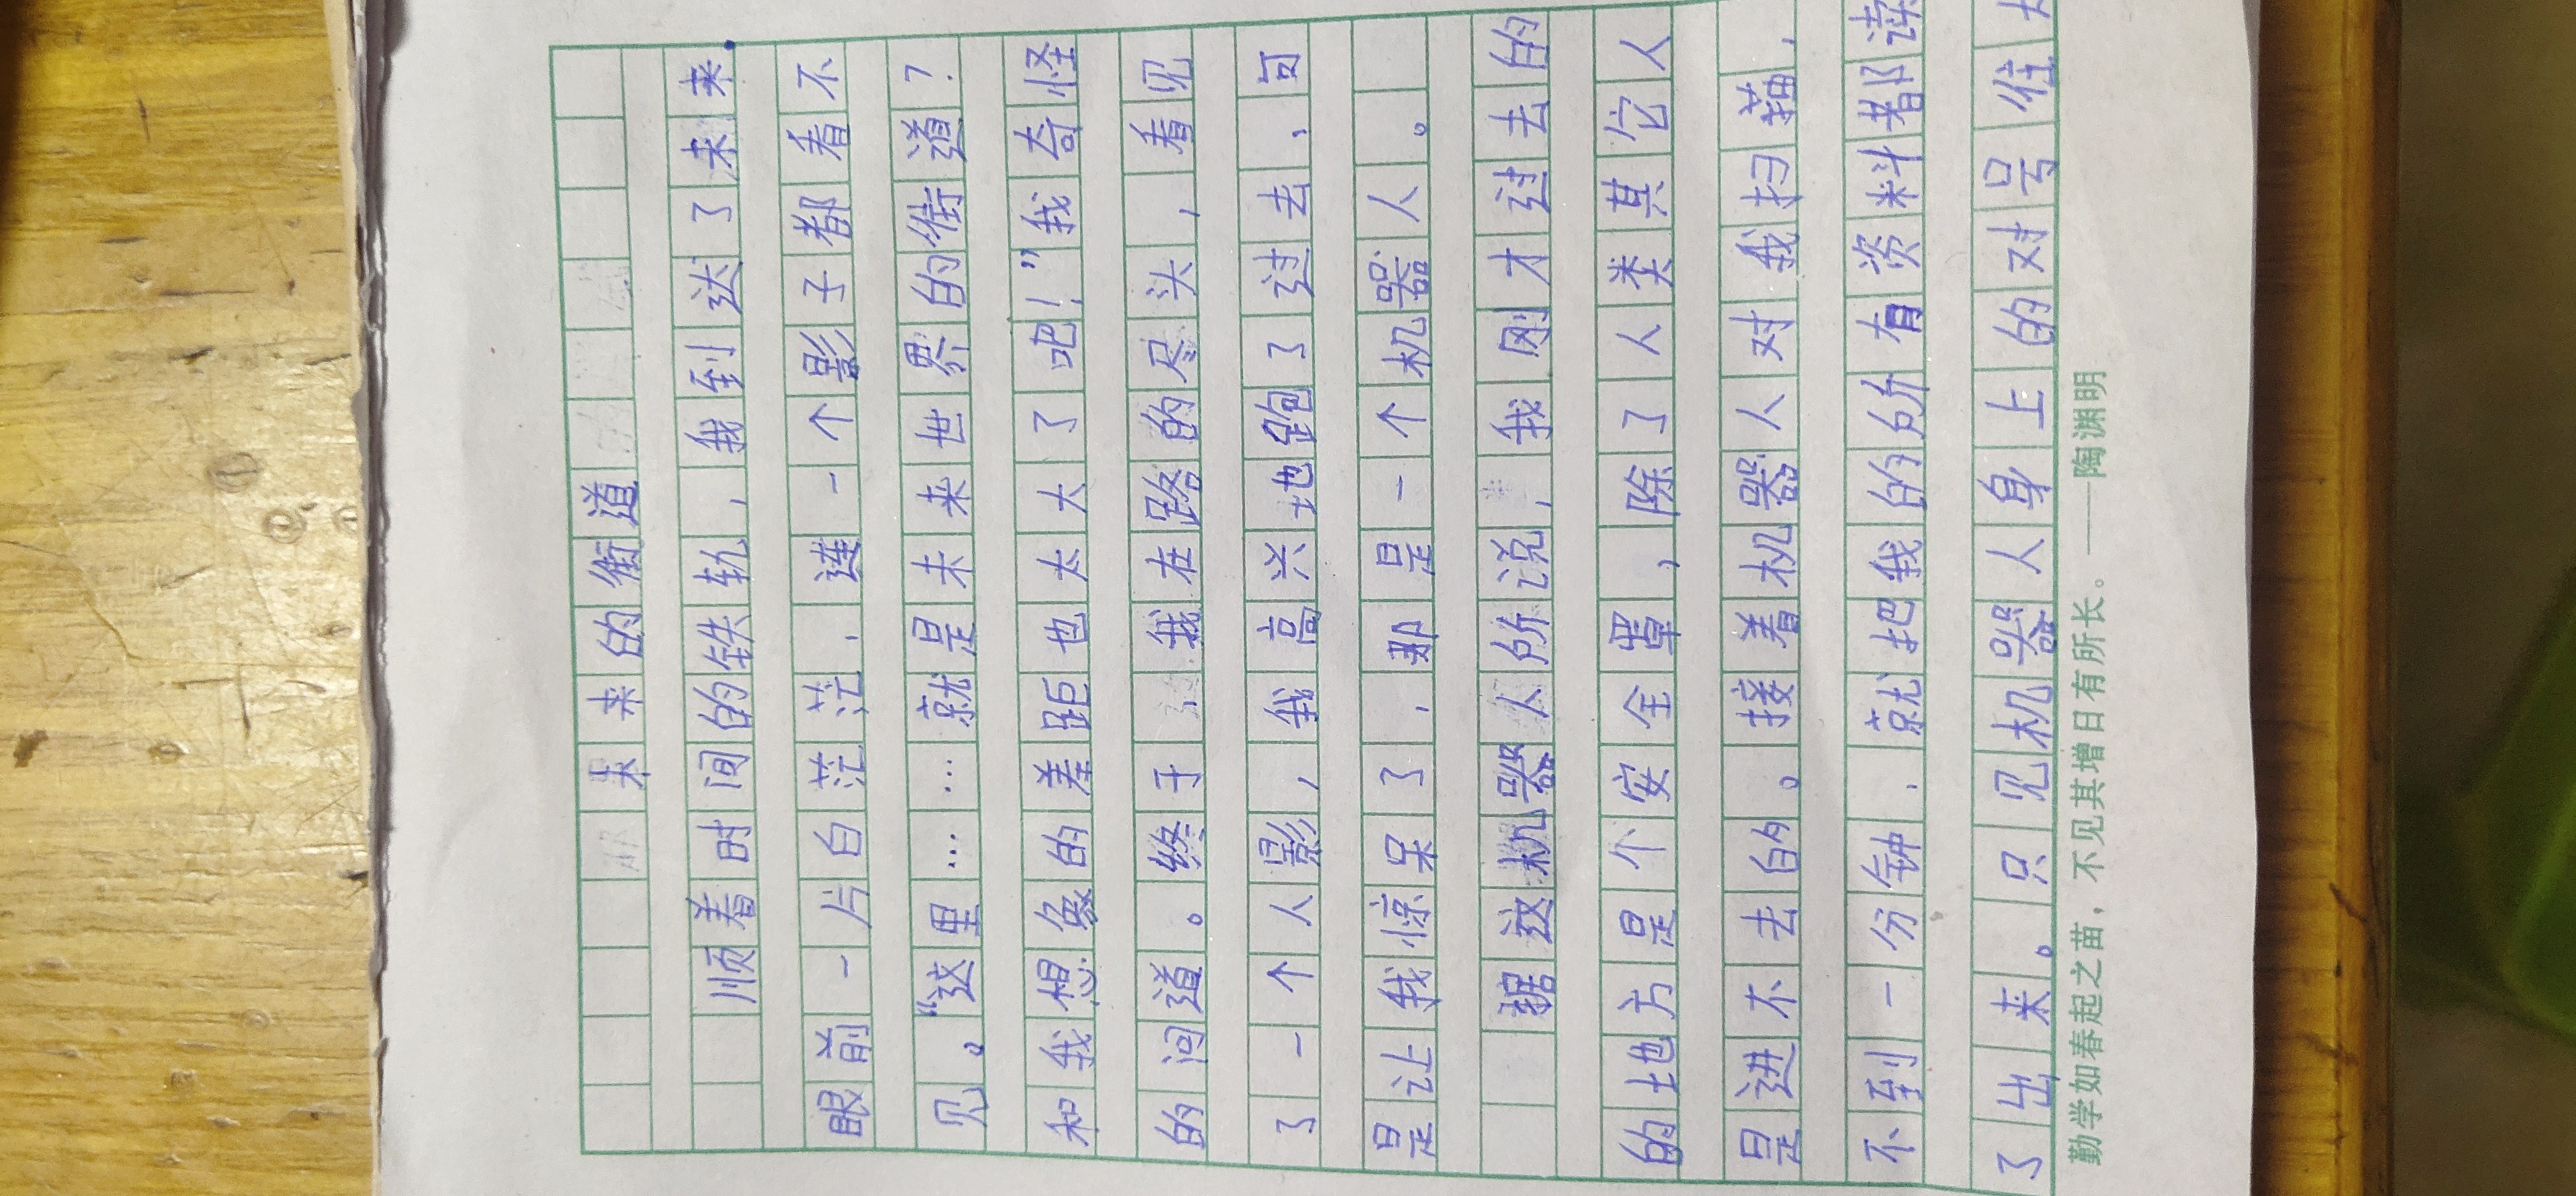 未来的街道
顺着时间的铁轨，我到达了未来
眼前一片白茫茫，连一个影子都看不
见。“这里……就是未来世界的街道？
和我想象的差距也太大了吧！”我奇怪
的问道。终于，我在路的尽头，看见
了一个人影，我高兴地跑了过去，可
是让我惊呆了，那是一个机器人。
据这机器人所说，我刚才过去的
的地方是个安全罩，除了人类其它人
是进不去的。接着机器人对我扫描，
不到一分钟，就把我的所有资料都读
了出来。只见机器人身上的对号住
勤学如春起之苗，不见其增日有所长。——陶渊明